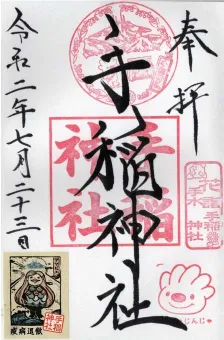 奉拝
手稲神社
手稲
神社
令和二年七月二十三日
手稲
神社
疫病退散
じんじゃ